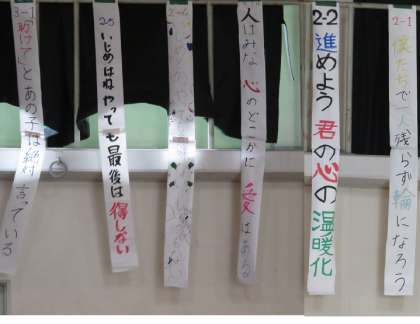 2-1 僕たちで一人残らず輪になろう
2-2 進めよう 君の心の温暖化
人はみな 心のどこかに 愛はある
2-5 いじめはね やっても最後は 得しない
3-1 「助けて」とあの子は絶対言っている